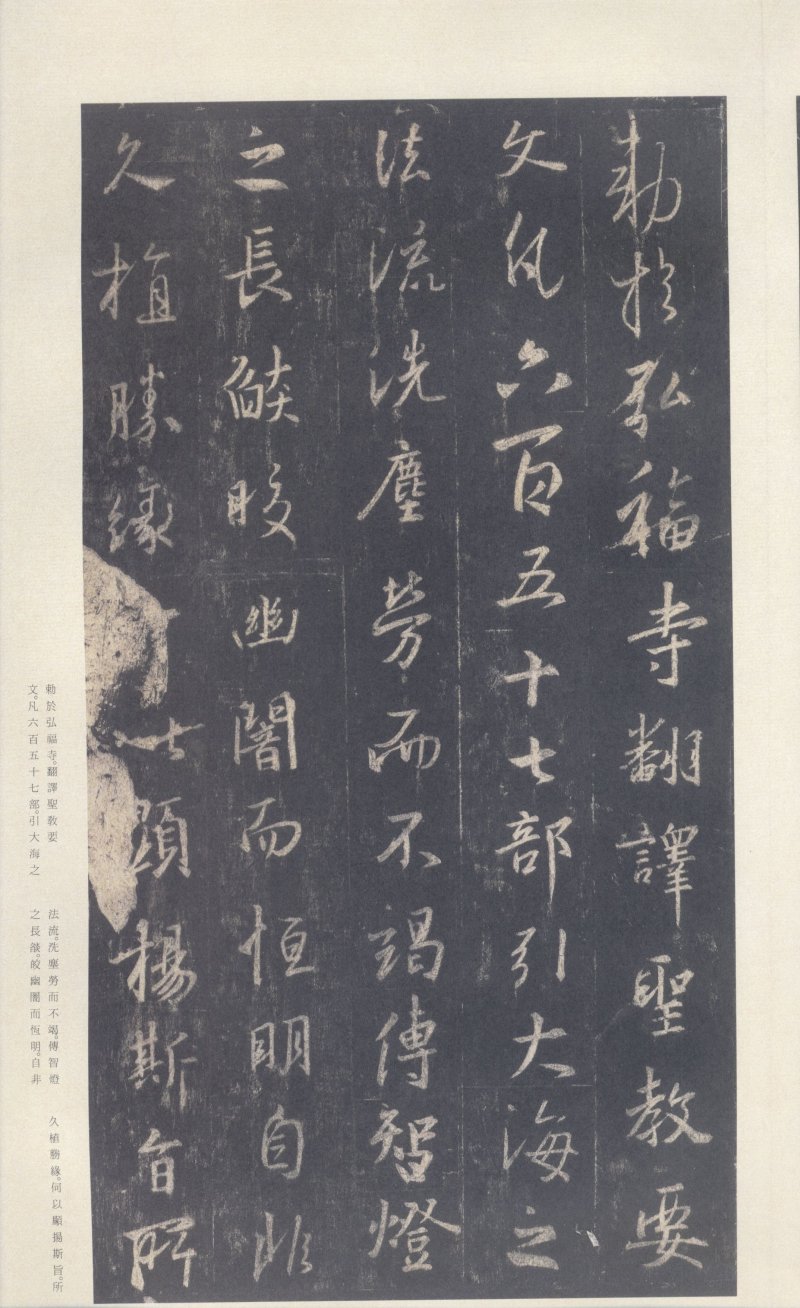 勅於弘福寺翻譯聖教要
文凡六百五十七部引大海之
法流洗塵勞而不竭傳智燈
之長燄皎幽闇而恒明自非
久植勝緣以顯揚斯旨所
勅於弘福寺。翻譯聖敎要
文。凡六百五十七部。引大海之
法流。洗塵勞而不竭。傳智燈
之長燄。皎幽闇而恆明。自非
久植勝緣。何以顯揚斯旨。所